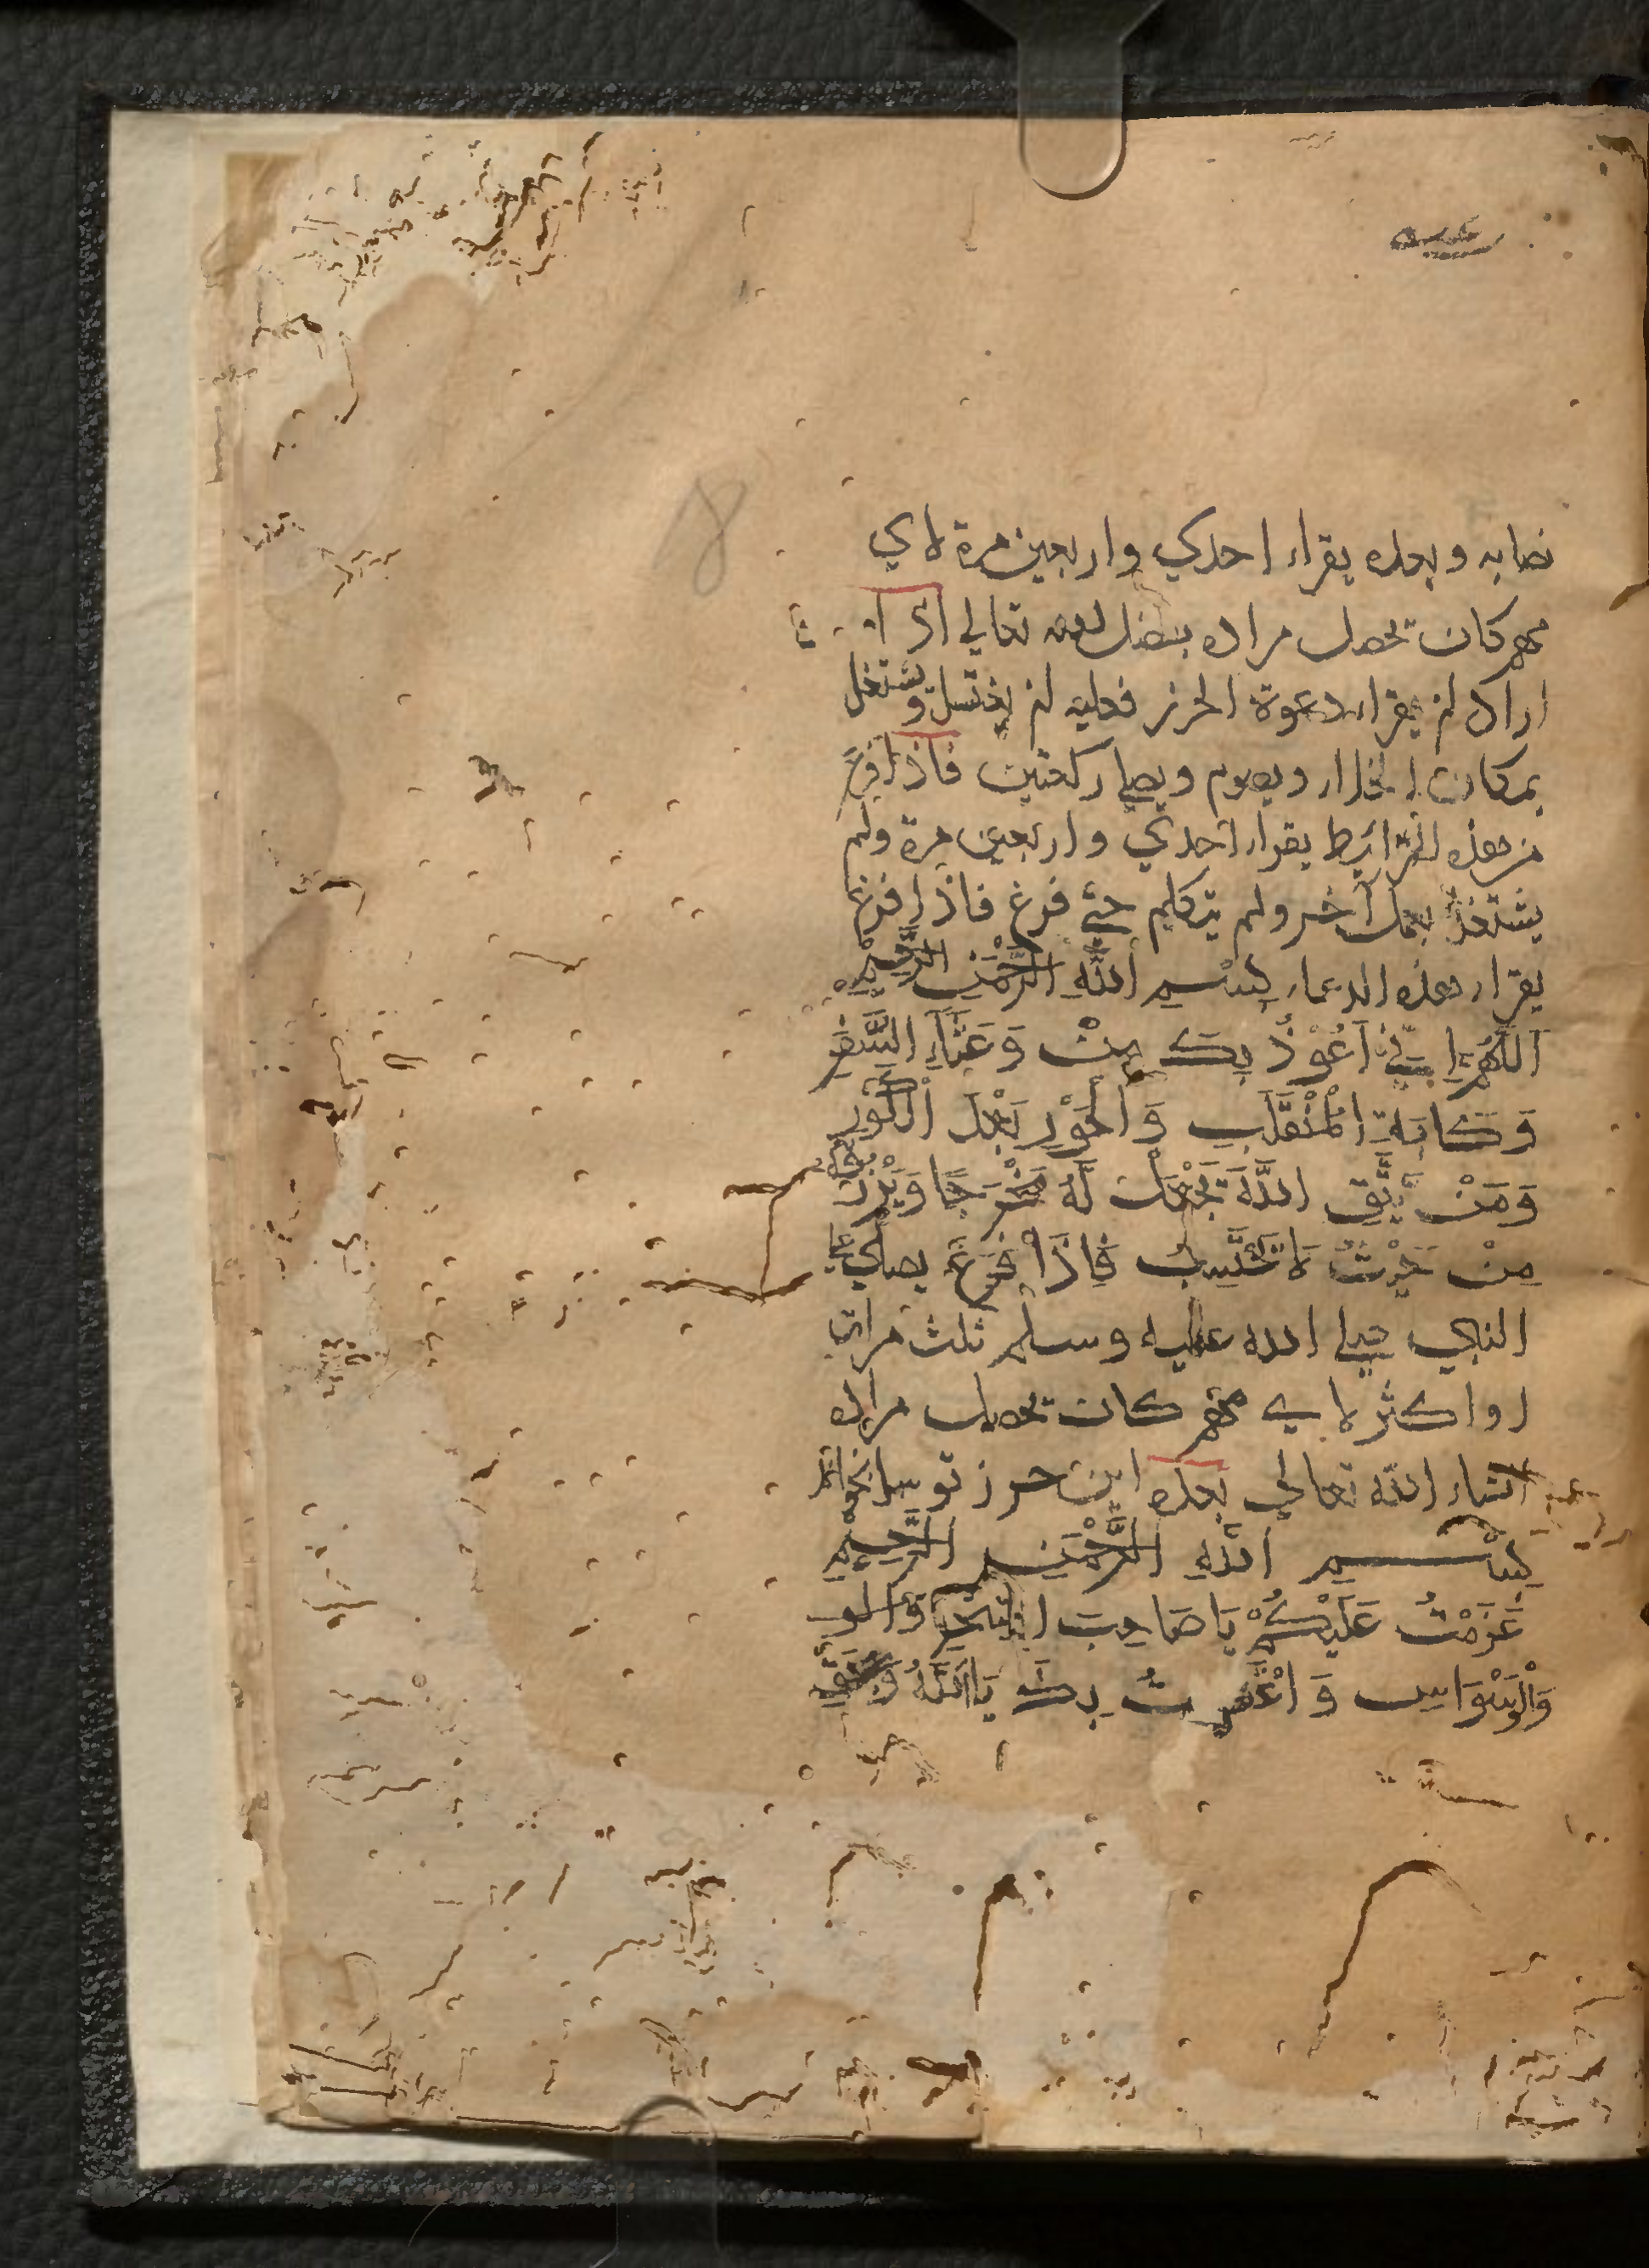 8
نصابه وبعده يقراء احدي واربعين مرة لاي
مهم كان تحصل مراده بفضل الله تعالي اذا
اراد ان يقراء دعوة الحرز فعليه ان يغتسل ويشتغل
بمكان الخلاء ويصوم ويصلي ركعتين فاذا فرغ
من هذه الشرائيط يقراء احدي واربعين مرة ولم
يشتغل بعمل آخر ولم يتكلم حتي فرغ فاذا فرغ
يقراء هذه الدعاء بِسْمِ اللَّهِ الرَّحْمٰنِ الرَّحِيْمِ
اَللّٰهُمَّ اِنِّيْ اَعُوْذُ بِكَ مِنْ وَعَثَآءِ السَّفَرِ
وَكَابَةِ الْمُنْقَلَبِ وَالْحَوْرِ بَعْدَ الْكَوْرِ
وَمَنْ يَّتَّقِ اللَّهَ يَجْعَلْ لَهُ مَخْرَجًا وَيَرْزُقْهُ
مِنْ حَيْثُ لَا يَحْتَسِبُ فَاِذَا فَرَغَ يصلي علي
النبي صلي الله عليه وسلم ثلث مرات
او اكثر لاي مهم كان تحصل مراده
انشاء الله تعالي بعده اين حرز نويسا نخواند
بِسْمِ اللَّهِ الرَّحْمٰنِ الرَّحِيْمِ
عَزَمْتُ عَلَيْكُمْ يَا صَاحِبَ السِّحْرِ
وَالْوَسْوَاسِ وَاعْتَصَمْتُ بِكَ يَا اَللَّهُ